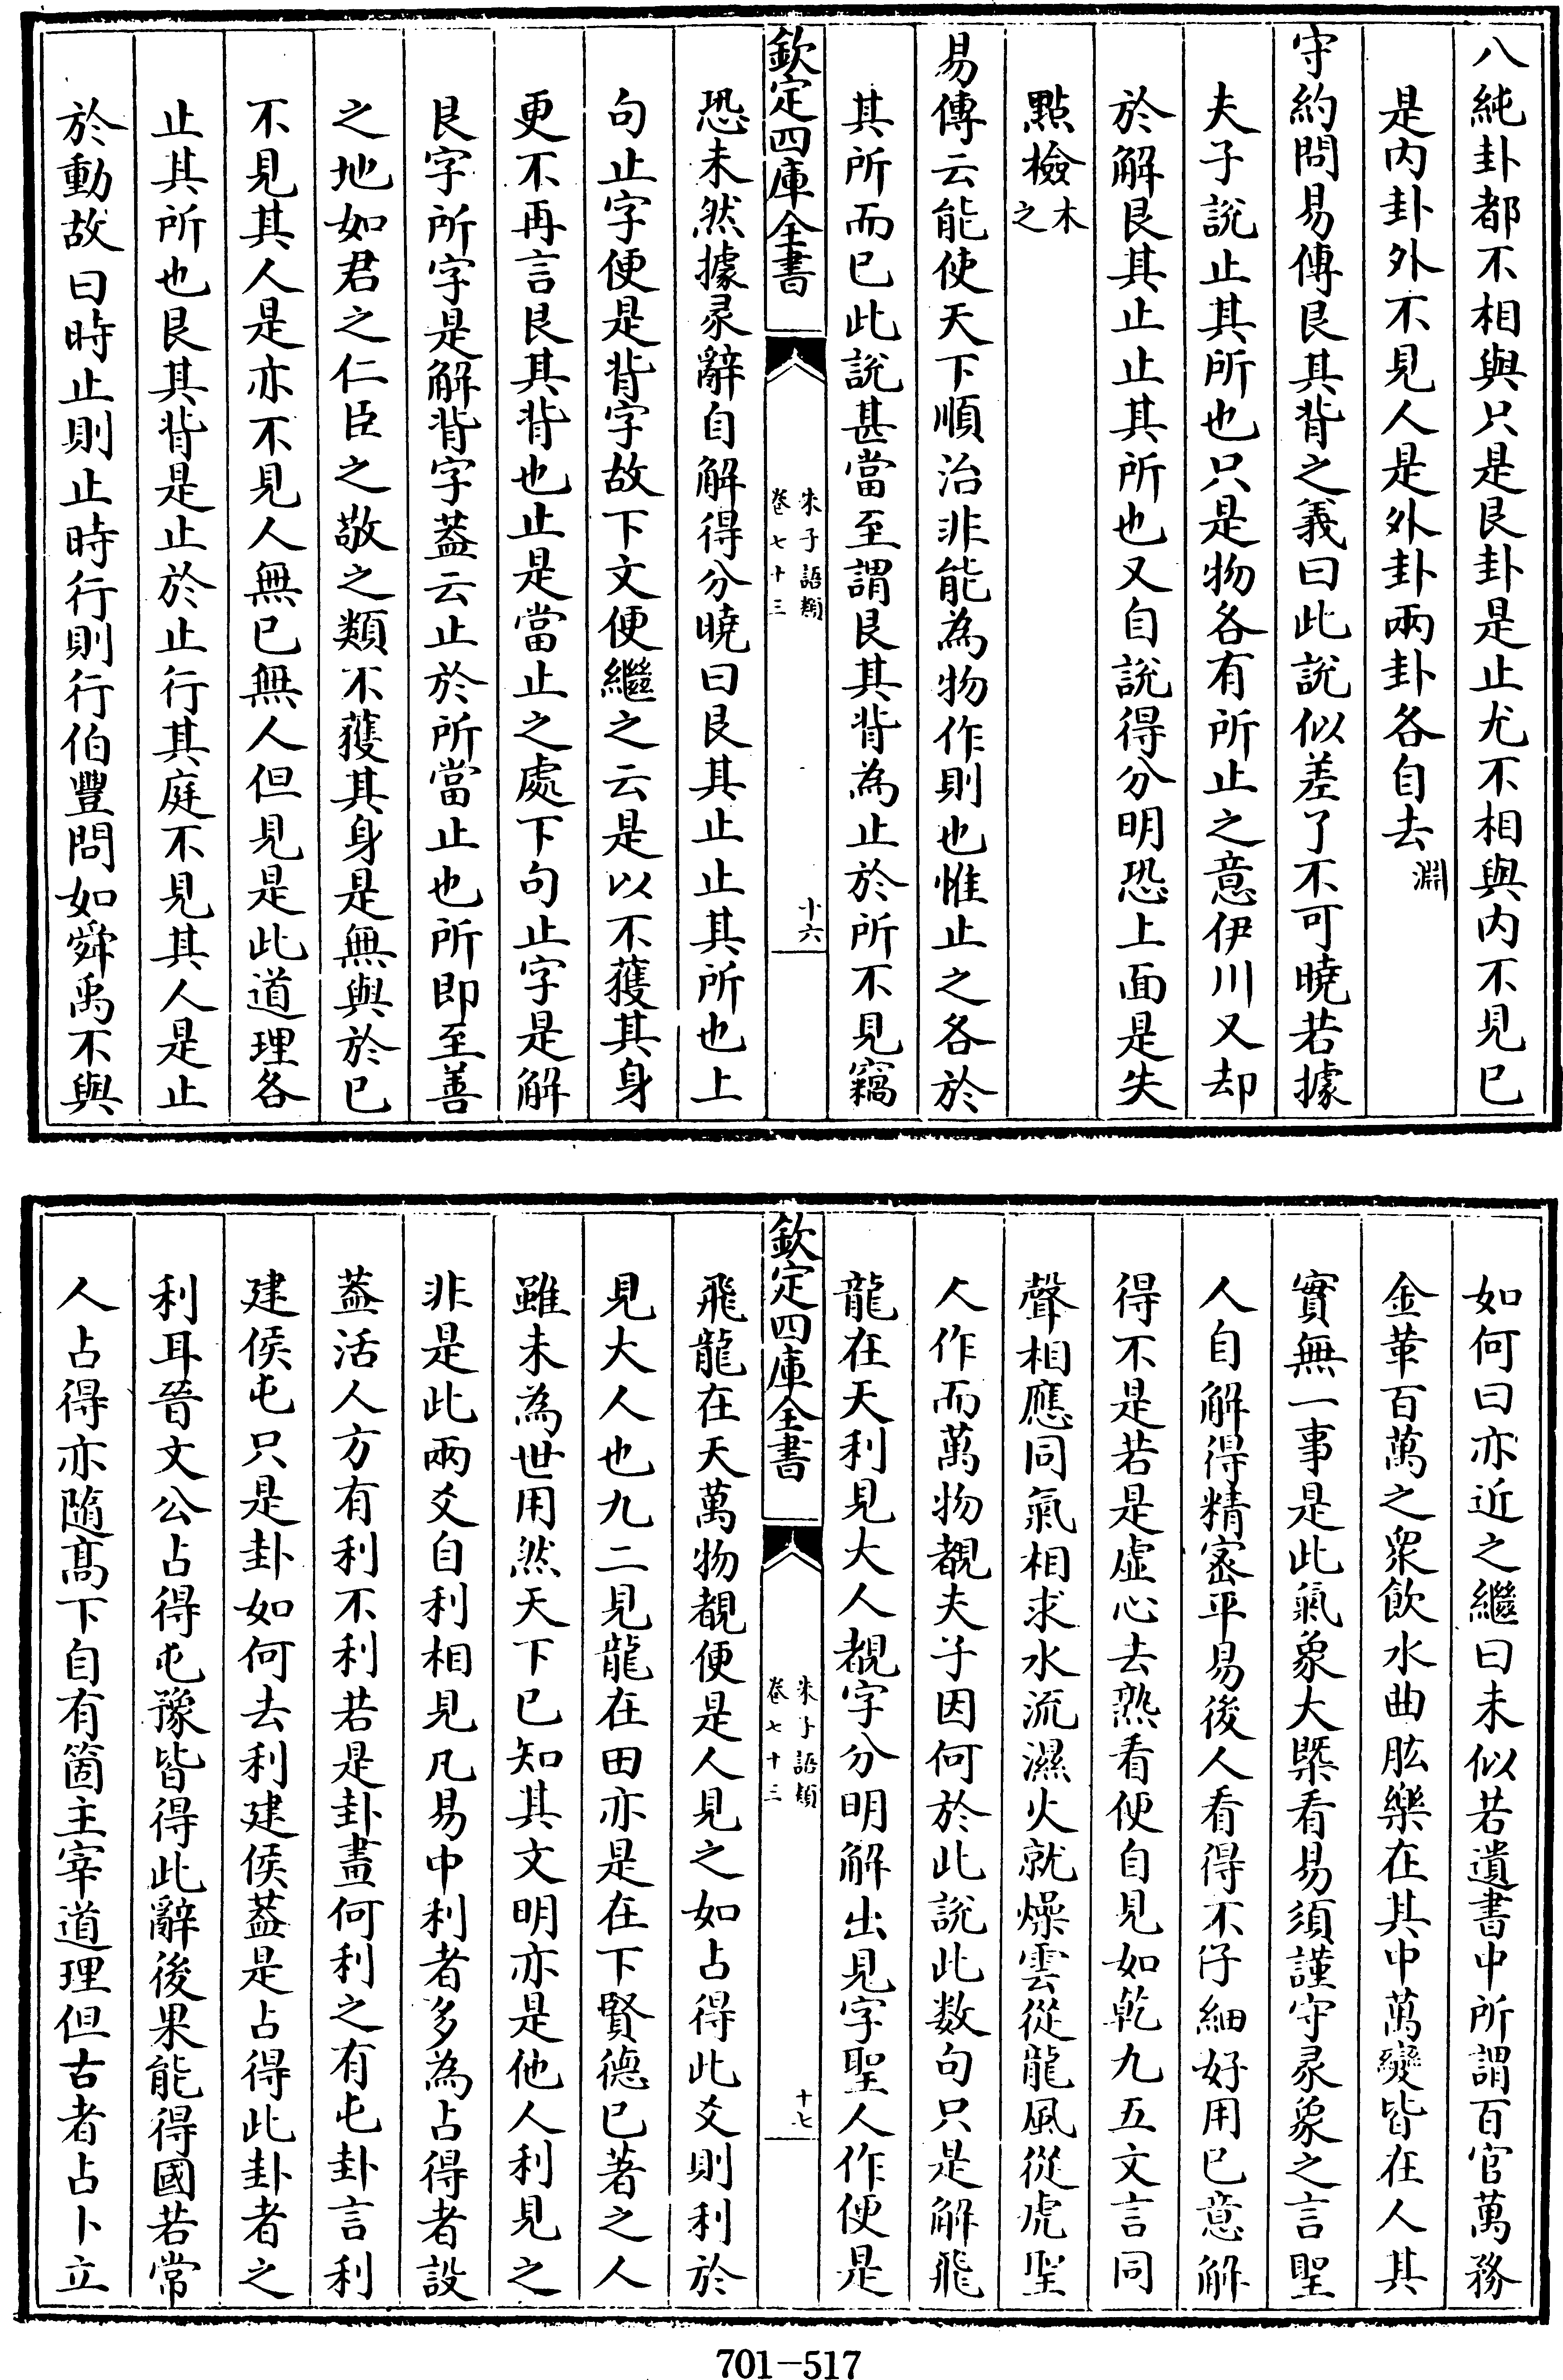 八純卦都不相與只是艮卦是止尤不相與内不見已
是内卦外不見人是外卦兩卦各自去淵
守約問易傳艮其背之義曰此說似差了不可曉若據
夫子說止其所也只是物各有所止之意伊川又却
於解艮其止止其所也又自說得分明恐上面是失
㸃檢木之
易傳云能使天下順治非能為物作則也惟止之各於
其所而已此說甚當至謂艮其背為止於所不見竊
欽定四庫全書
朱子語類
卷七十三
十六
恐未然據彖辭自解得分曉曰艮其止止其所也上
句止字便是背字故下文便繼之云是以不獲其身
更不再言艮其背也止是當止之處下句止字是解
艮字所字是解背字葢云止於所當止也所即至善
之地如君之仁臣之敬之類不獲其身是無與於已
不見其人是亦不見人無已無人但見是此道理各
止其所也艮其背是止於止行其庭不見其人是止
於動故曰時止則止時行則行伯豐問如舜禹不與
如何曰亦近之繼曰未似若遺書中所謂百官萬務
金革百萬之衆飲水曲肱樂在其中萬變皆在人其
實無一事是此氣象大槩看易須謹守彖象之言聖
人自解得精密平易後人看得不仔細好用已意解
得不是若是虚心去熟看便自見如乾九五文言同
聲相應同氣相求水流濕火就燥雲從龍風從虎聖
人作而萬物覩夫子因何於此說此数句只是解飛
龍在天利見大人覩字分明解出見字聖人作便是
欽定四庫全書
朱子語類
卷七十三
十七
飛龍在天萬物覩便是人見之如占得此爻則利於
見大人也九二見龍在田亦是在下賢德已著之人
雖未為世用然天下已知其文明亦是他人利見之
非是此兩爻自利相見凡易中利者多為占得者設
葢活人方有利不利若是卦畫何利之有屯卦言利
建侯屯只是卦如何去利建侯葢是占得此卦者之
利耳晉文公占得屯豫皆得此辭後果能得國若常
人占得亦隨髙下自有箇主宰道理但古者占卜立
701-517